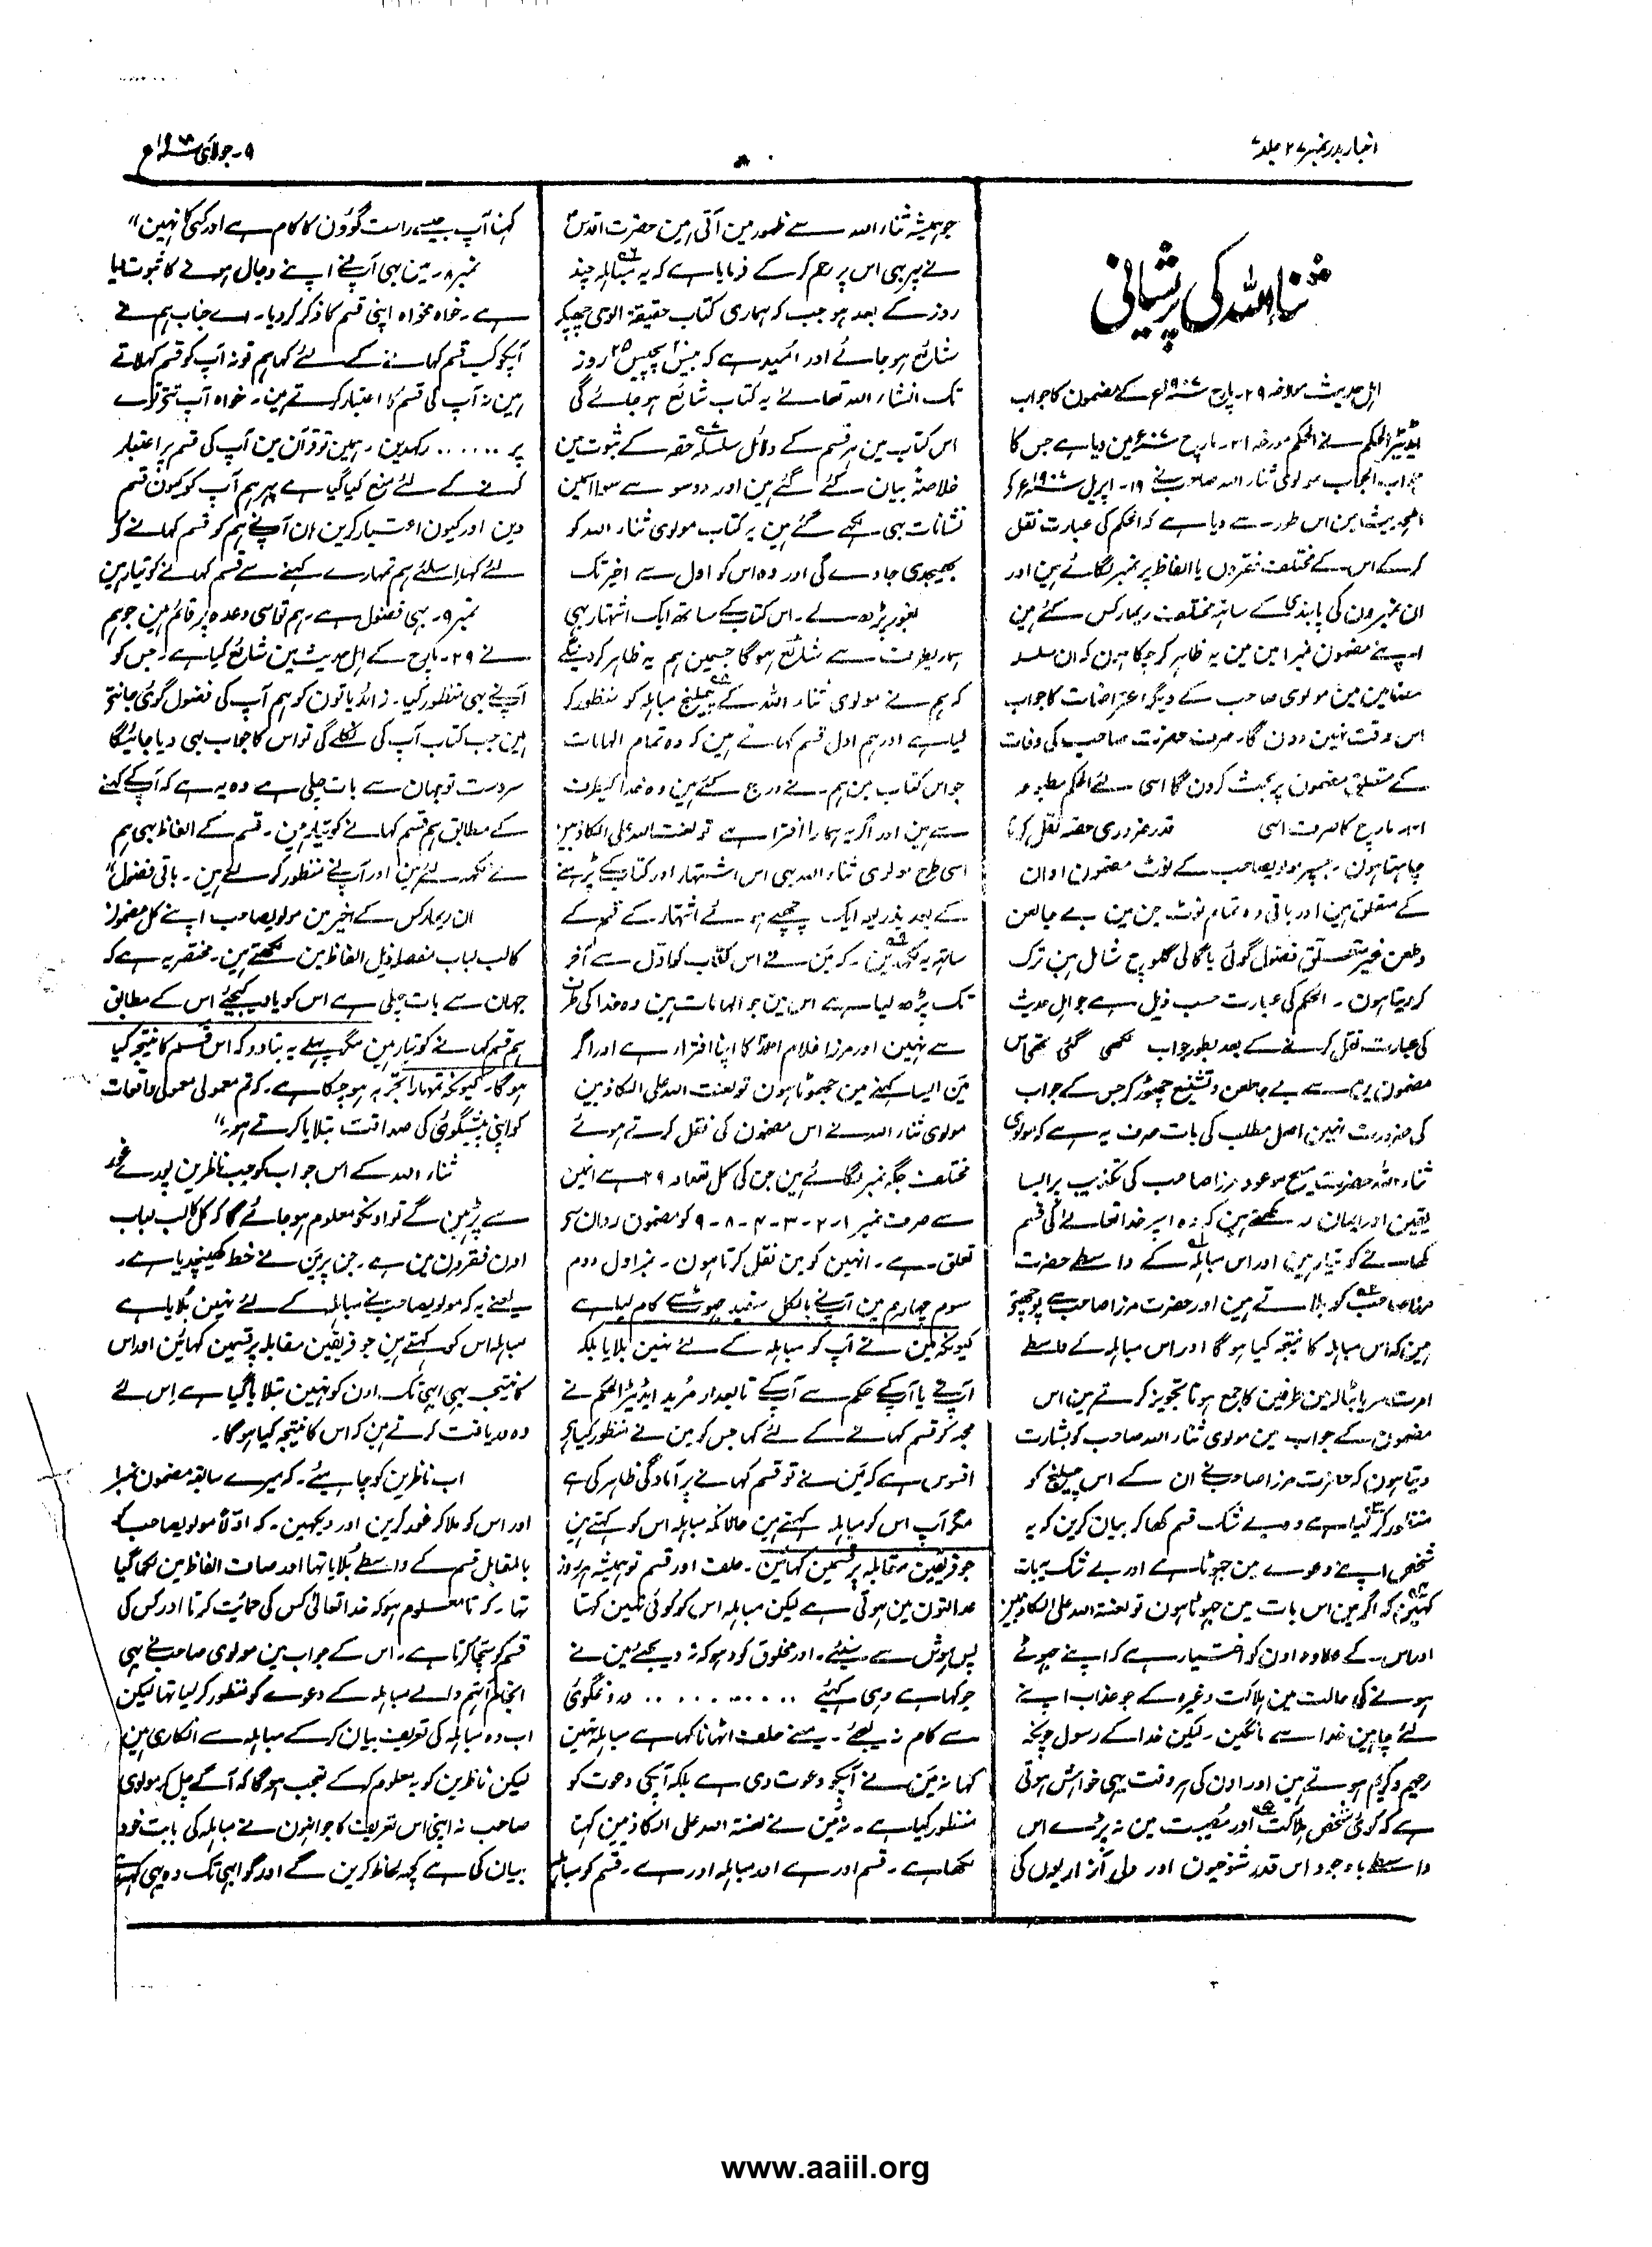 اخبار بدر نمبر ۲۷ جلد ۷
۸
۹ - جولائی ۱۹۰۸ء
ثناء اللہ کی پریشانی
اہل حدیث مورخہ ۲۹ - مارچ ۱۹۰۷ء کے مضمون کا جواب
ایڈیٹر الحکم نے الحکم مورخہ ۳۱ - مارچ ۱۹۰۷ء مین دیا ہے جس کا
جواب الجواب مولوی ثناء اللہ صاحب نے ۱۹ - اپریل ۱۹۰۷ء کو
اہلحدیث مین اس طور سے دیا ہے کہ الحکم کی عبارت نقل
کر کے اس کے مختلف فقرون یا الفاظ پر نمبر لگائے ہین اور
ان نمبرون کی پابندی کے ساتھ مختلف ریمارکس کئے ہین
اپنے مضمون نمبر ا مین مین یہ ظاہر کر چکا ہون کہ ان سلسلہ
مضامین مین مولوی صاحب کے دیگر اعتراضات کا جواب
اس وقت نہین دون گا۔ صرف حضرت صاحب کی وفات
کے متعلق مضمون پر بحث کرون گا اسی لئے الحکم مطبوعہ
۳۱ مارچ کا صرف اسی قدر ضروری حصہ نقل کرنا
چاہتا ہون - جسپر مولویصاحب کے نوٹ مضمون اوان
کے متعلق ہین اور باقی وہ تمام نوٹ جن مین بے جا لعن
وطعن غیر متعلق فضول گوئی یا گالی گلوچ شامل ہین ترک
کر دیتا ہون - الحکم کی عبارت حسب ذیل ہے جو اہل حدیث
کی عبارت نقل کرنے کے بعد بطور جواب لکھی گئی تھی اس
مضمون پر سے بے جا طعن و تشنیع چھوڑ کر جس کے جواب
کی ضرورت نہین اصل مطلب کی بات صرف یہ ہے کہ مولوی
ثناء اللہ حضرت مسیح موعود مرزا صاحب کی تکذیب پر ایسا
یقین اور ایمان رکھتے ہین کہ وہ اسپر خدا تعالےٰ کی قسم
کھانے کو تیار ہین اور اس مباہلہ کے واسطے حضرت
مرزا صاحب کو بلاتے ہین اور حضرت مرزا صاحب سے پوچھتے
ہین کہ اس مباہلہ کا نتیجہ کیا ہوگا اور اس مباہلہ کے واسطے
امرتسر یا بٹالہ مین طرفین کا جمع ہونا تجویز کرتے ہین اس
مضمون کے جواب مین مولوی ثناء اللہ صاحب کو بشارت
دیتا ہون کہ حضرت مرزا صاحب نے ان کے اس چیلنج کو
منظور کر لیا ہے وہ بے شک قسم کھا کر بیان کرین کہ یہ
شخص اپنے دعوے مین جھوٹا ہے اور بے شک یہ بات
کہین کہ اگر مین اس بات مین جھوٹا ہون تو لعنۃ اللہ علی الکاذبین
اور اس کے علاوہ اون کو اختیار ہے کہ اپنے جھوٹے
ہونے کی حالت مین ہلاکت وغیرہ کے جو عذاب اپنے
لئے چاہین خدا سے مانگین - لیکن خدا کے رسول چونکہ
رحیم و کریم ہوتے ہین اور اون کی ہر وقت یہی خواہش ہوتی
ہے کہ کوئی شخص ہلاکت اور مصیبت مین نہ پڑے اس
واسطے باوجود اس قدر شوخیون اور دل آزاریون کی
جو ہمیشہ ثناء اللہ سے ظہور مین آتی ہین حضرت اقدس
نے پھر بھی اس پر رحم کر کے فرمایا ہے کہ یہ مباہلہ چند
روز کے بعد ہو جب کہ ہماری کتاب حقیقۃ الوحی چھپکر
شائع ہو جائے اور امید ہے کہ بیس پچیس روز
تک انشاء اللہ تعالےٰ یہ کتاب شائع ہو جائے گی
اس کتاب مین ہر قسم کے دلائل سلسلہ حقہ کے ثبوت مین
خلاصۃً بیان کئے گئے ہین اور دو سو سے سوا اسمین
نشانات بھی لکھے گئے ہین یہ کتاب مولوی ثناء اللہ کو
بھیجدی جاوے گی اور وہ اس کو اول سے اخیر تک
بغور پڑھ لے - اس کتاب کے ساتھ ایک اشتہار بھی
ہماریطرف سے شائع ہوگا جسمین ہم یہ ظاہر کر دینگے
کہ ہم نے مولوی ثناء اللہ کے چیلنج مباہلہ کو منظور کر
لیا ہے اور ہم اول قسم کھاتے ہین کہ وہ تمام الہامات
جو اس کتاب مین ہم نے درج کئے ہین وہ خدا کیطرف
سے ہین اور اگر یہ ہمارا افترا ہے تو لعنت اللہ علی الکاذبین
اسی طرح مولوی ثناء اللہ بھی اس اشتہار اور کتاب کے پڑہنے
کے بعد بذریعہ ایک چھپے ہوئے اشتہار کے قسم کے
ساتھ یہ لکھین - کہ مین نے اس کتاب کو اوّل سے آخر
تک پڑھ لیا ہے اس مین جو الہامات ہین وہ خدا کی طرف
سے نہین اور مرزا غلام احمد کا اپنا افترا ہے اور اگر
مین ایسا کہنے مین جھوٹا ہون تو لعنت اللہ علی الکاذبین
مولوی ثناء اللہ نے اس مضمون کی نقل کرتے ہوئے
مختلف جگہ نمبر لگائے ہین جن کی کل تعداد ۲۹ ہے انمین
سے صرف نمبر ۱-۲-۳-۴-۸-۹ کو مضمون روان سے
تعلق ہے - انہین کو مین نقل کرتا ہون - نمبر اول دوم
سوم چہارم مین آپ نے بالکل سفید جھوٹ سے کام لیا ہے
کیونکہ مین نے آپ کو مباہلہ کے لئے نہین بلایا بلکہ
آپ نے یا آپ کے حکم سے آپ کے تابعدار مُرید ایڈیٹر الحکم نے
مجہ کو قسم کھانے کے لئے کہا جس کو مین نے منظور کیا ہے
افسوس ہے کہ مین نے تو قسم کھانے پر آمادگی ظاہر کی ہے
مگر آپ اس کو مباہلہ کہتے ہین حالانکہ مباہلہ اس کو کہتے ہین
جو فریقین مقابلہ پر قسمین کھائین - حلف اور قسم تو ہمیشہ ہر روز
عدالتون مین ہوتی ہے لیکن مباہلہ اس کو کوئی نہین کہتا
پس ہوش سے سنیئے - اور مخلوق کو دہوکہ نہ دیجئے مین نے
جو کہا ہے وہی کہیئے . . . . . . . . . دروغگوئی
سے کام نہ لیجئے - مینے حلف اٹھانا کہا ہے مباہلہ نہین
کہا نہ مین نے آپکو دعوت دی ہے بلکہ آپکی دعوت کو
منظور کیا ہے - نہ مین نے لعنۃ اللہ علی الکاذبین کہنا
لکھا ہے - قسم اور ہے اور مباہلہ اور ہے - قسم کو مباہلہ
کہنا آپ جیسے راست گوؤن کا کام ہے اور کسی کا نہین“
نمبر ۸ - مین بھی آپ نے اپنے دجال ہونے کا ثبوت دیا
ہے - خواہ مخواہ اپنی قسم کا ذکر کر دیا - اے جناب ہم نے
آپکو کب قسم کھانے کے لئے کہا ہم تو نہ آپ کو قسم کہلاتے
ہین نہ آپ کی قسم کا اعتبار کرتے ہین - خواہ آپ تتے توے
پر ...... رکہدین - ہمین تو قرآن مین آپ کی قسم پر اعتبار
کرنے کے لئے منع کیا گیا ہے پھر ہم آپ کو کیون قسم
دین اور کیون اعتبار کرین ہان آپ نے ہم کو قسم کھانے کو
لئے کہا اسلئے ہم تمہارے کہنے سے قسم کھانے کو تیار ہین
نمبر ۹ - بھی فضول ہے - ہم تو اسی وعدہ پر قائم ہین جو ہم
نے ۲۹ - مارچ کے اہل حدیث مین شائع کیا ہے - جس کو
آپ نے بھی منظور کیا - زائد باتون کو ہم آپ کی فضول گوئی جانتے
ہین جب کتاب آپ کی نکلے گی تو اس کا جواب بھی دیا جائیگا
سردست تو جہان سے بات چلی ہے وہ یہ ہے کہ آپ کے کہنے
کے مطابق ہم قسم کھانے کو تیار ہین - قسم کے الفاظ بھی ہم
نے لکھ لئے ہین اور آپ نے منظور کر لئے ہین - باقی فضول“
ان ریمارکس کے اخیر مین مولویصاحب اپنے کل مضمون
کا لب لباب مفصلہ ذیل الفاظ مین لکھتے ہین - مختصر یہ ہے کہ
جہان سے بات چلی ہے اس کو یاد کیجئے اس کے مطابق
ہم قسم کھانے کو تیار ہین مگر پہلے یہ بتا دو کہ اس قسم کا نتیجہ کیا
ہوگا - کیونکہ تمہارا تجربہ ہو چکا ہے - کہ تم معمولی معمولی واقعات
کو اپنی پیشگوئی کی صداقت بتلایا کرتے ہو -“
ثناء اللہ کے اس جواب کو جب ناظرین پورے غور
سے پڑہین گے تو اونکو معلوم ہو جائے گا کہ کل کا لب لباب
اون فقرون مین ہے - جن پر مین نے خط کھینچدیا ہے -
یعنے یہ کہ مولویصاحب نے مباہلہ کے لئے نہین بُلایا ہے
مباہلہ اس کو کہتے ہین جو فریقین مقابلہ پر قسمین کھائین اور اس
کا نتیجہ بھی ابھی تک اون کو نہین بتلایا گیا ہے اِس لئے
وہ دریافت کرتے ہین کہ اس کا نتیجہ کیا ہوگا -
اب ناظرین کو چاہیئے - کہ میرے سابقہ مضمون نمبر ا
اور اس کو ملا کر غور کرین اور دیکھین - کہ اوّلاً مولویصاحب کو
بالمقابل قسم کے واسطے بُلایا تھا اور صاف الفاظ مین لکھا گیا
تھا - کہ تا معلوم ہو کہ خدا تعالیٰ کس کی حمائیت کرتا اور کس کی
قسم کو سچا کرتا ہے - اس کے جواب مین مولوی صاحب نے بھی
انجام آتہم والے مباہلہ کے دعوے کو منظور کر لیا تھا لیکن
اب وہ مباہلہ کی تعریف بیان کر کے مباہلہ سے انکاری ہین
لیکن ناظرین کو یہ معلوم کر کے تعجب ہوگا کہ آگے چل کر مولوی
صاحب نہ اپنی اس تعریف کا جو انہون نے مباہلہ کی بابت خود
بیان کی ہے کچہ لحاظ کرین گے اور گو ابھی تک وہ یہی کہتے
www.aaiil.org